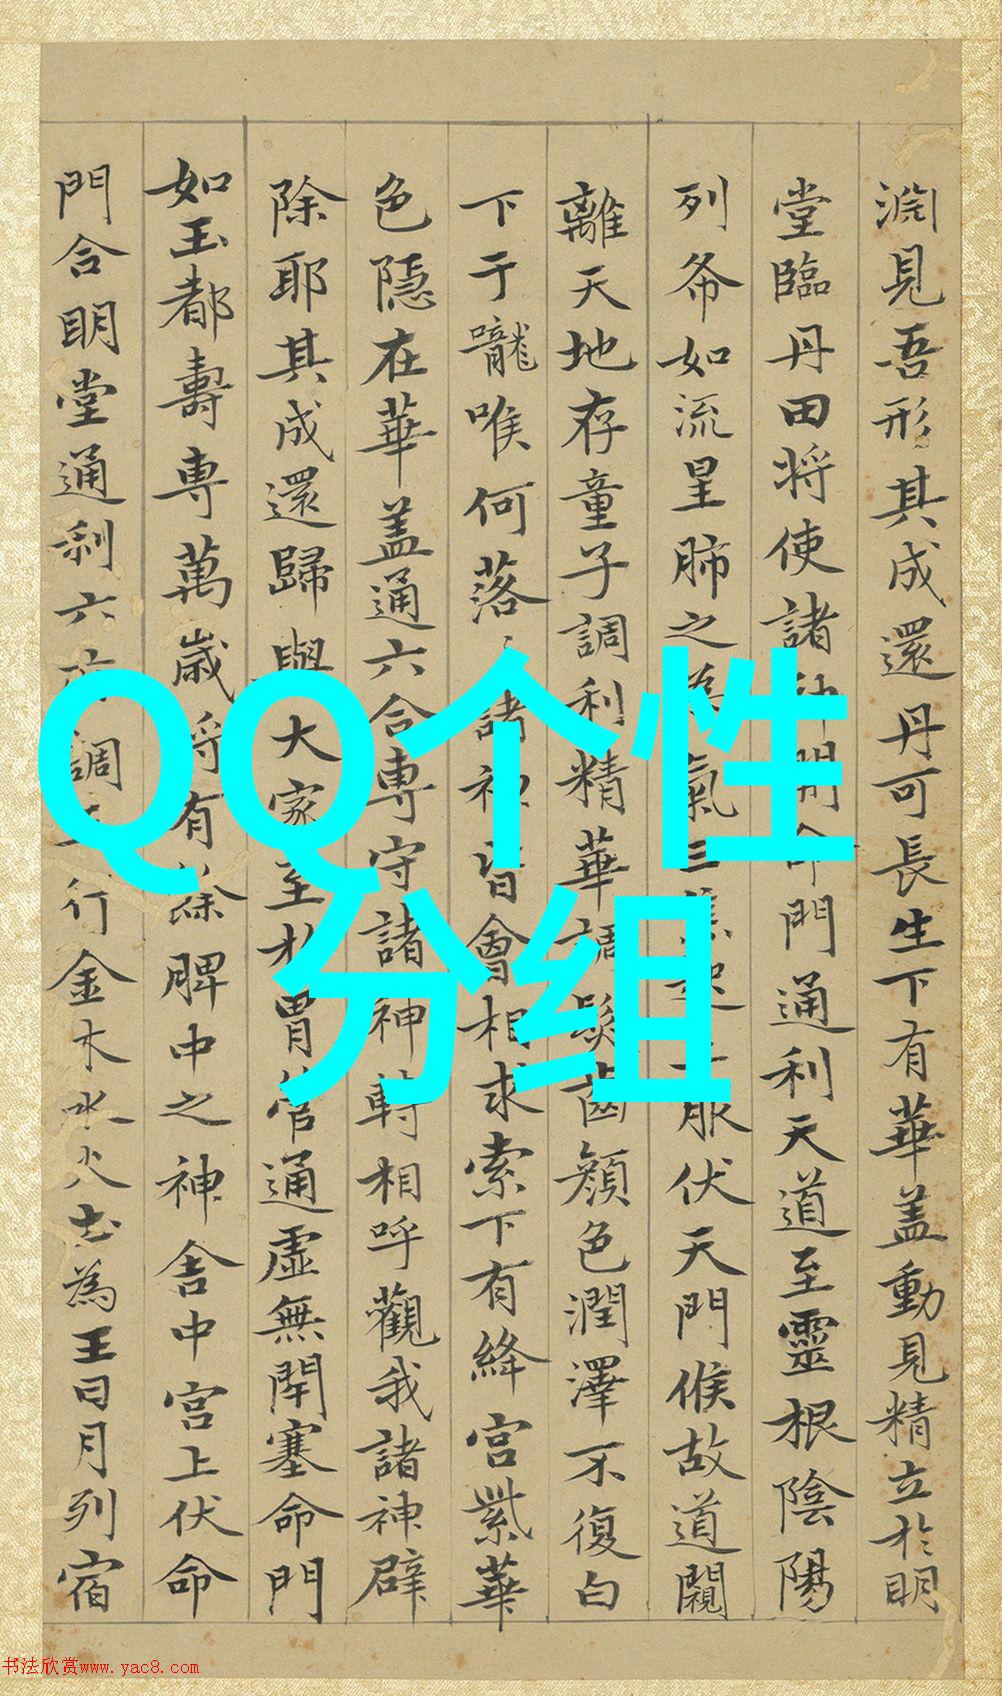 淵見吾形其成還丹可長生下有華盖動見精立於明
堂臨丹田将使諸神開命門通利天道至靈根陰陽
列布如流星肺之為氣三焦起服伏天門候故道闚
離天地存童子調利精華調髮齒顔色潤澤不復白
下于嚨喉何落〻諸神皆會相求索下有絳宮紫華
色隱在華盖通六合専守諸神轉相呼觀我諸神辟
除耶其成還歸與大家至於胃管通虛無閇塞命門
如玉都壽専萬歲将有餘脾中之神舎中宮上伏命
門合明堂通利六府調五行金木水火土為王日月列宿
QQ个性
分组
书法欣赏www.yac8.com